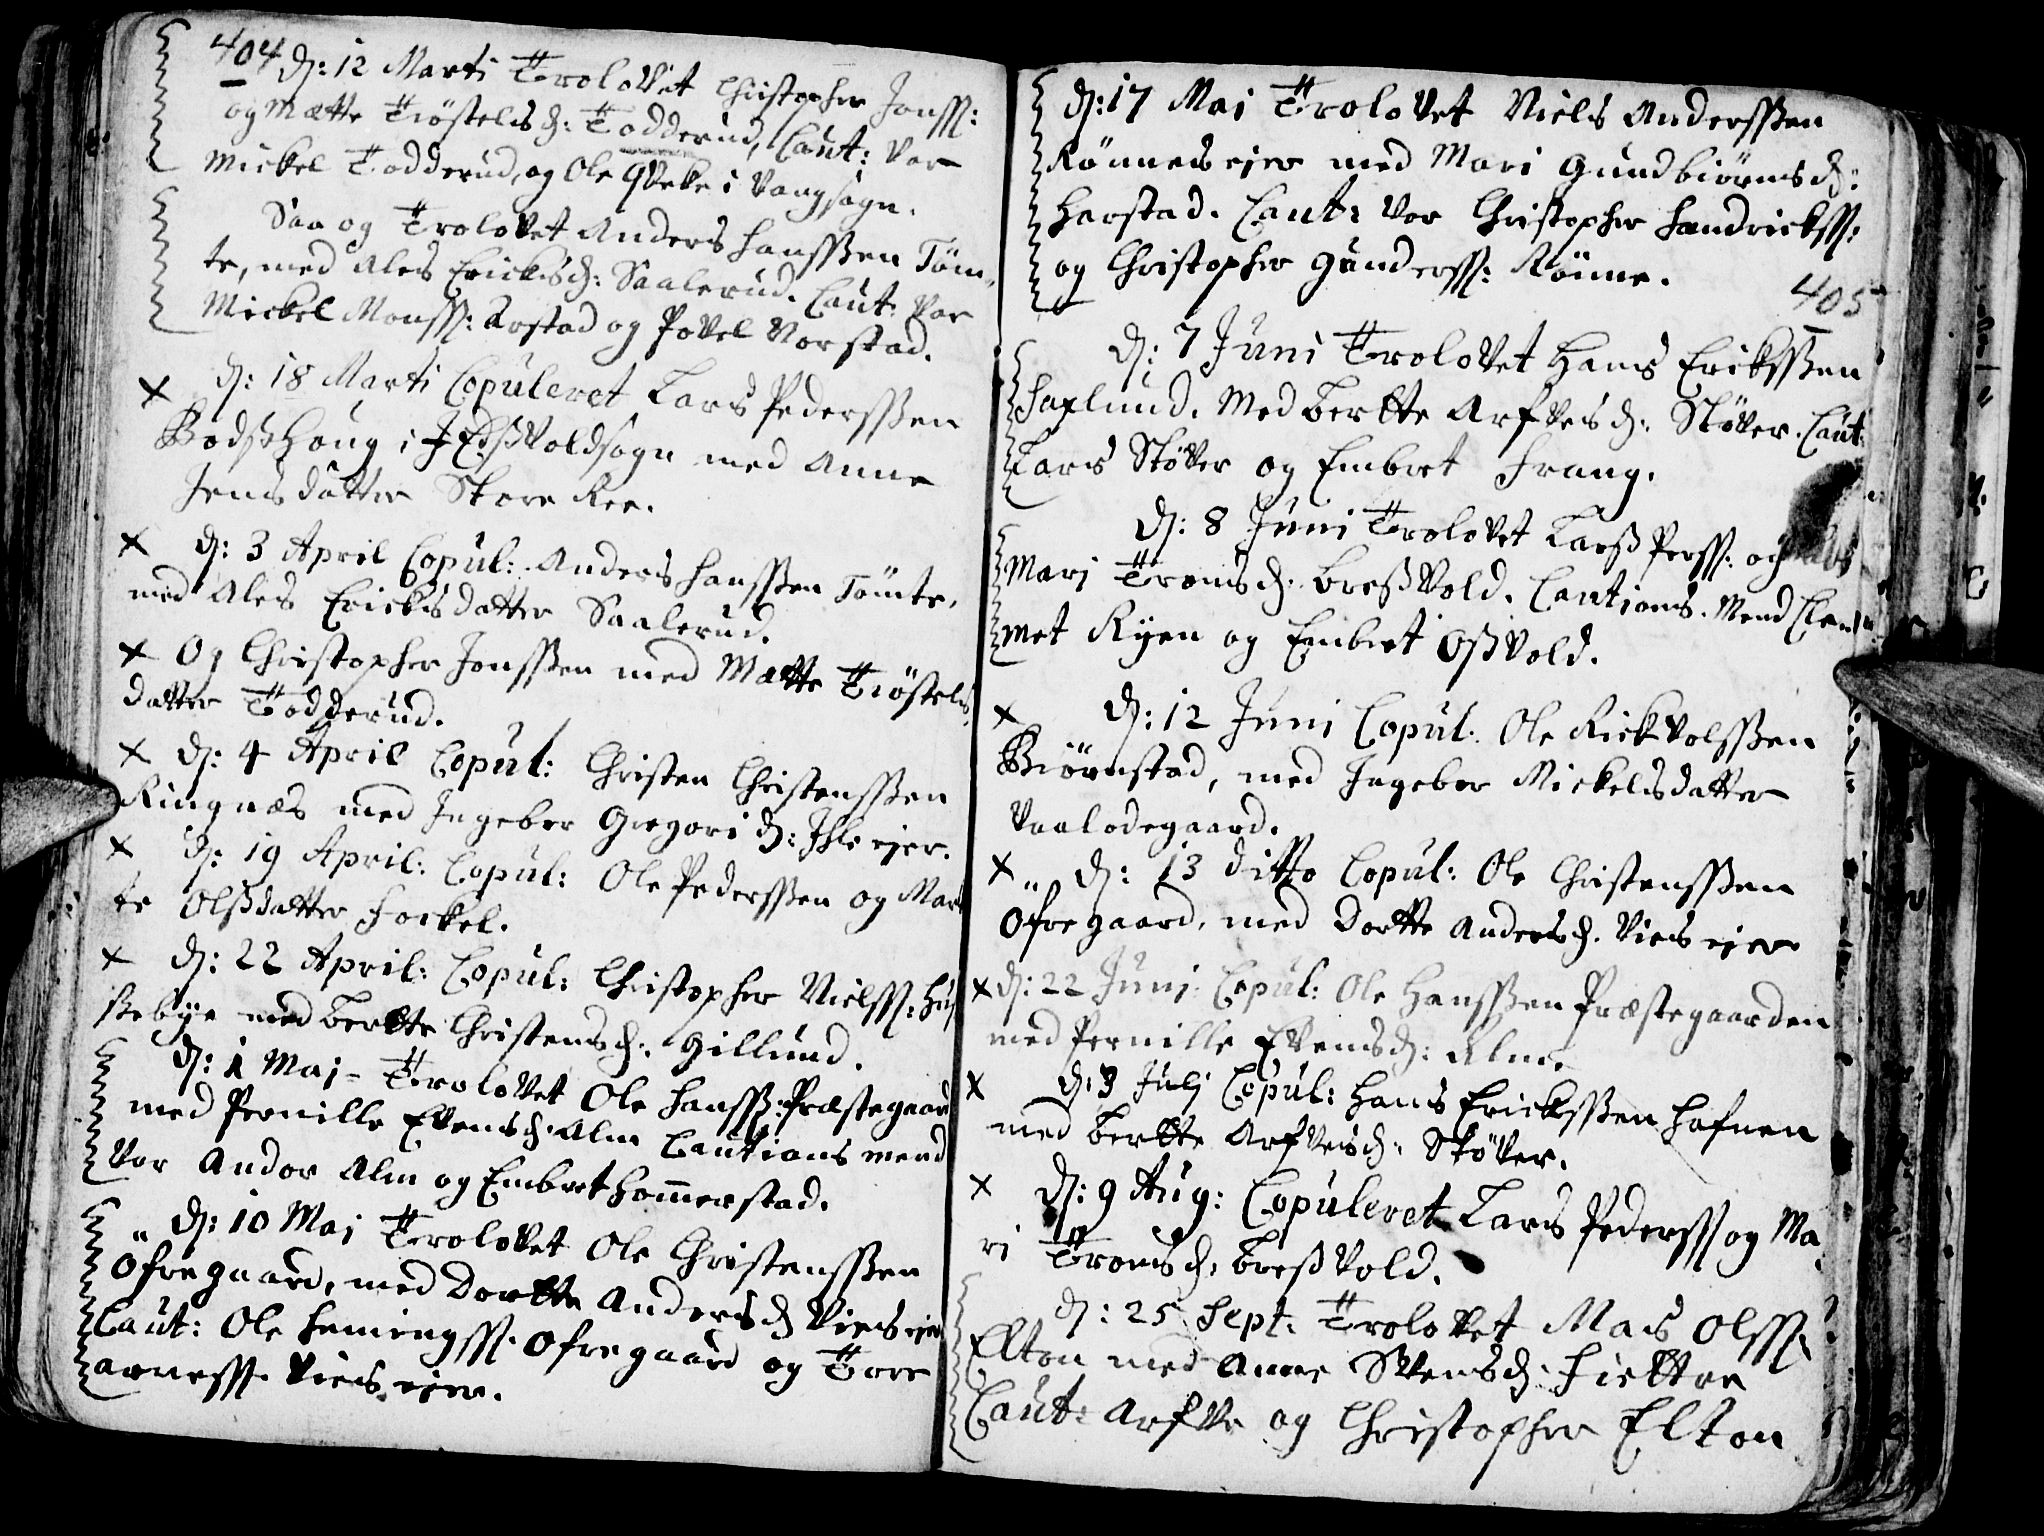 404
d: 12 Marti Trolovet Christopher Jonss:
og Mætte Tiøstelsd: Todderud, Caut: var
Mickel Todderud, og Ole qveke i Vangsogn.
Saa og Trolovet Anders Hanssßen Töm,
te, med Ales Ericksd: Saalerud. Caut. var
Mickel Monss: Arstad og Povel Korstad.
x d: 18 Marti Copuleret Lars Pederssßen
Bodßhoug i Edßvoldsogn med Anne
Jensdatter Store Ree.
x d: 3 April Copul: Anders Hanssßen Tömte,
med Ales Ericksdatter Saalerud.
x Og Christopher Jonssßen med Mætte Tiøstels,
datter Todderud.
x d: 4 April Copul: Christen Christenssßen
Ringnæs med Ingebor Gregori d: Ihle eier.
x d: 19 April: Copul: Ole Pederssßen og Mar
te Olßdatter Fockel.
x d: 22 April: Copul: Christopher Nielss: Hüs
ßebye med Berette Christensd. Gillund.
d: 1 Maj Trolovet Ole Hanss: Præstegaard
med Pernille Evensd. Alm Cautions mend
var Andor Alm og Embret Hommerstad.
d: 10 Maj Trolovet Ole Christenssßen
Öfregaard, med Dorette Andersd Viesejer
Caut: Ole Hemingss. Öfregaard og Tore
arness. Viesejer.
d: 17 Maj Trolovet Niels Anderssßen
Rönneseier med Mari Gundbiörnsd:
Harstad. Caut: var Christopher Handrickss:
og Christopher Gunderss: Rönne.
405
d: 7 Juni Trolovet Hans Erickssßen
Haflund. Med Berette Arfvesd. Stöver. Caut:
Lars Stöver og Embret Frang.
d: 8 Juni Trolovet Larß Perss: og
Mari Tronsd. Breßvold. Cautions. Mend Clem
met Ryen og Embret Oßvold.
x d: 12 Juni Copul. Ole Rickvolssßen
Biörnstad, med Ingebor Mickelsdatter
Vaalodegaard.
x d: 13 ditto Copul: Ole Christenssßen
Öfregaard, med Dorette Andersd. Viesejer
x d: 22 Juni. Copul: Ole Hanssßen Præstegaarden
med Pernille Evensd: Alm.
x d: 3 Julj Copul: Hans Erickssßen Hafnen
med Berette Arfvesd. Stöver.
x d: 9 Aug: Copuleret Lars Pederss og Ma,
ri Tronsd. Breßvold.
d: 25 Sept: Trolovet Mas Olss.
Elton med Anne Svensd: Fiettre
Caut. Arfve og Christopher Elton